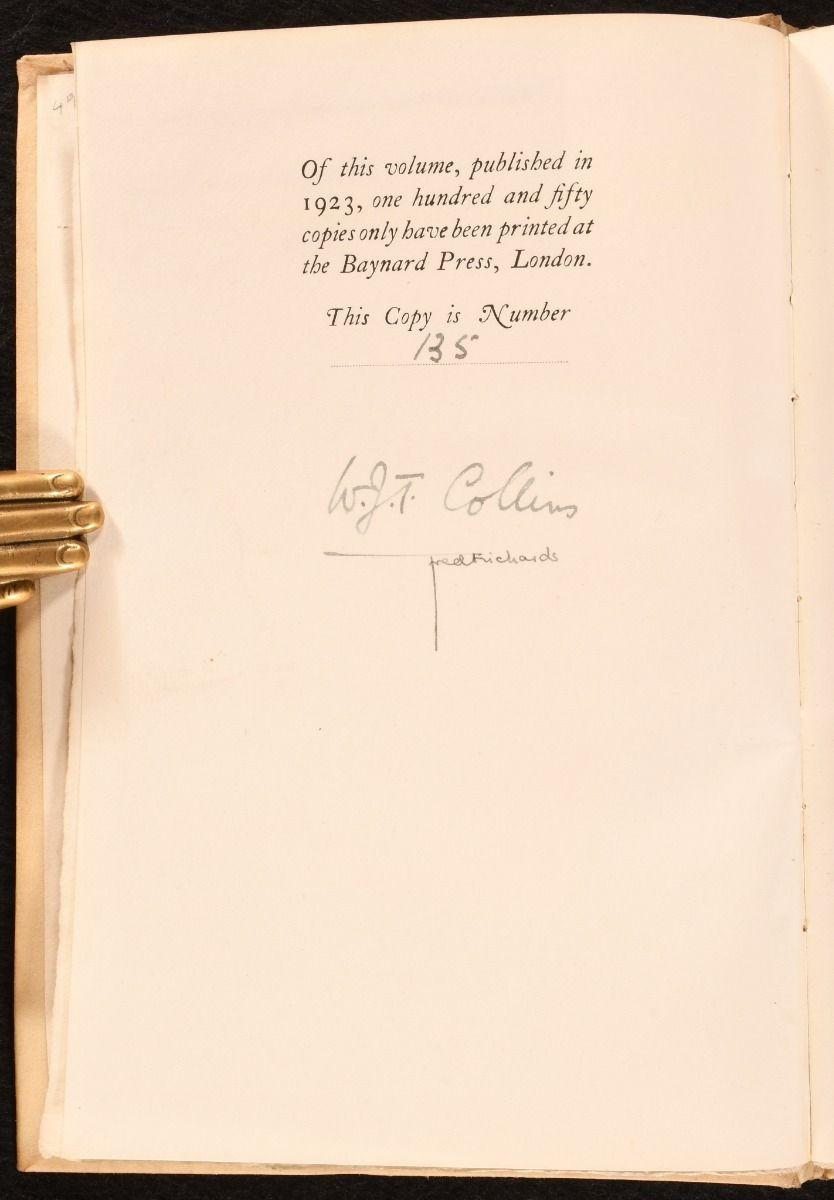 Of this volume, published in
1923, one hundred and fifty
copies only have been printed at
the Baynard Press, London.
This Copy is Number
135
W.J.T. Collins
Fred Richards